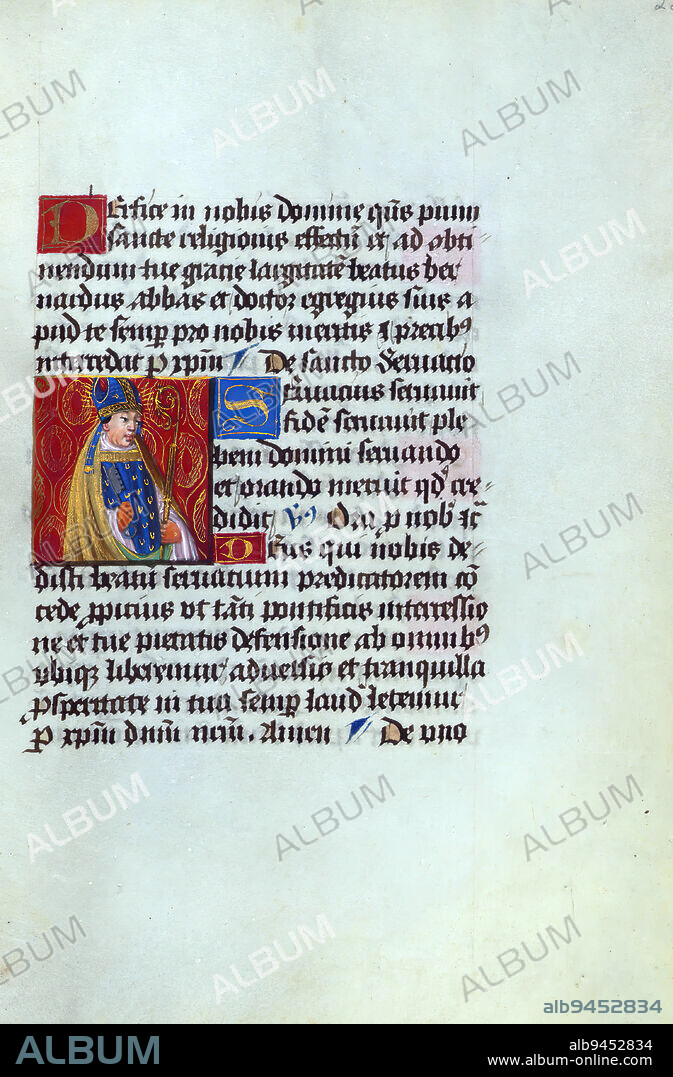 Perfice in nobis domine q̄s pium
sancte religionis effectū et ad obti
nendum tue gracie largitatē beatus ber
nardus abbas et doctor egregius suis a
pud te semp̄ pro nobis meritis ⁊ precibꝰ
intercedat p xp̄m De sancto Seruacio
Seruacius seruiuit
fidē seruiuit ple
bem domini seruando
et orando meruit qd̄ cre-
didit v̾ Ora p nob̄ sc̄
Deus qui nobis de-
disti beatū seruatium predicatorem cō
cede ꝓpicius vt tāti pontificis intercessio
ne et tue pietatis defensione ab omnibꝰ
vbiqꝫ liberemur aduersis et tranquilla
ꝓsperitate in tua semp̄ laud̄ letemur
P xp̄m dn̄m nr̄m. Amen De vno
alb9452834
ALBUM
alb9452834
www.album-online.com